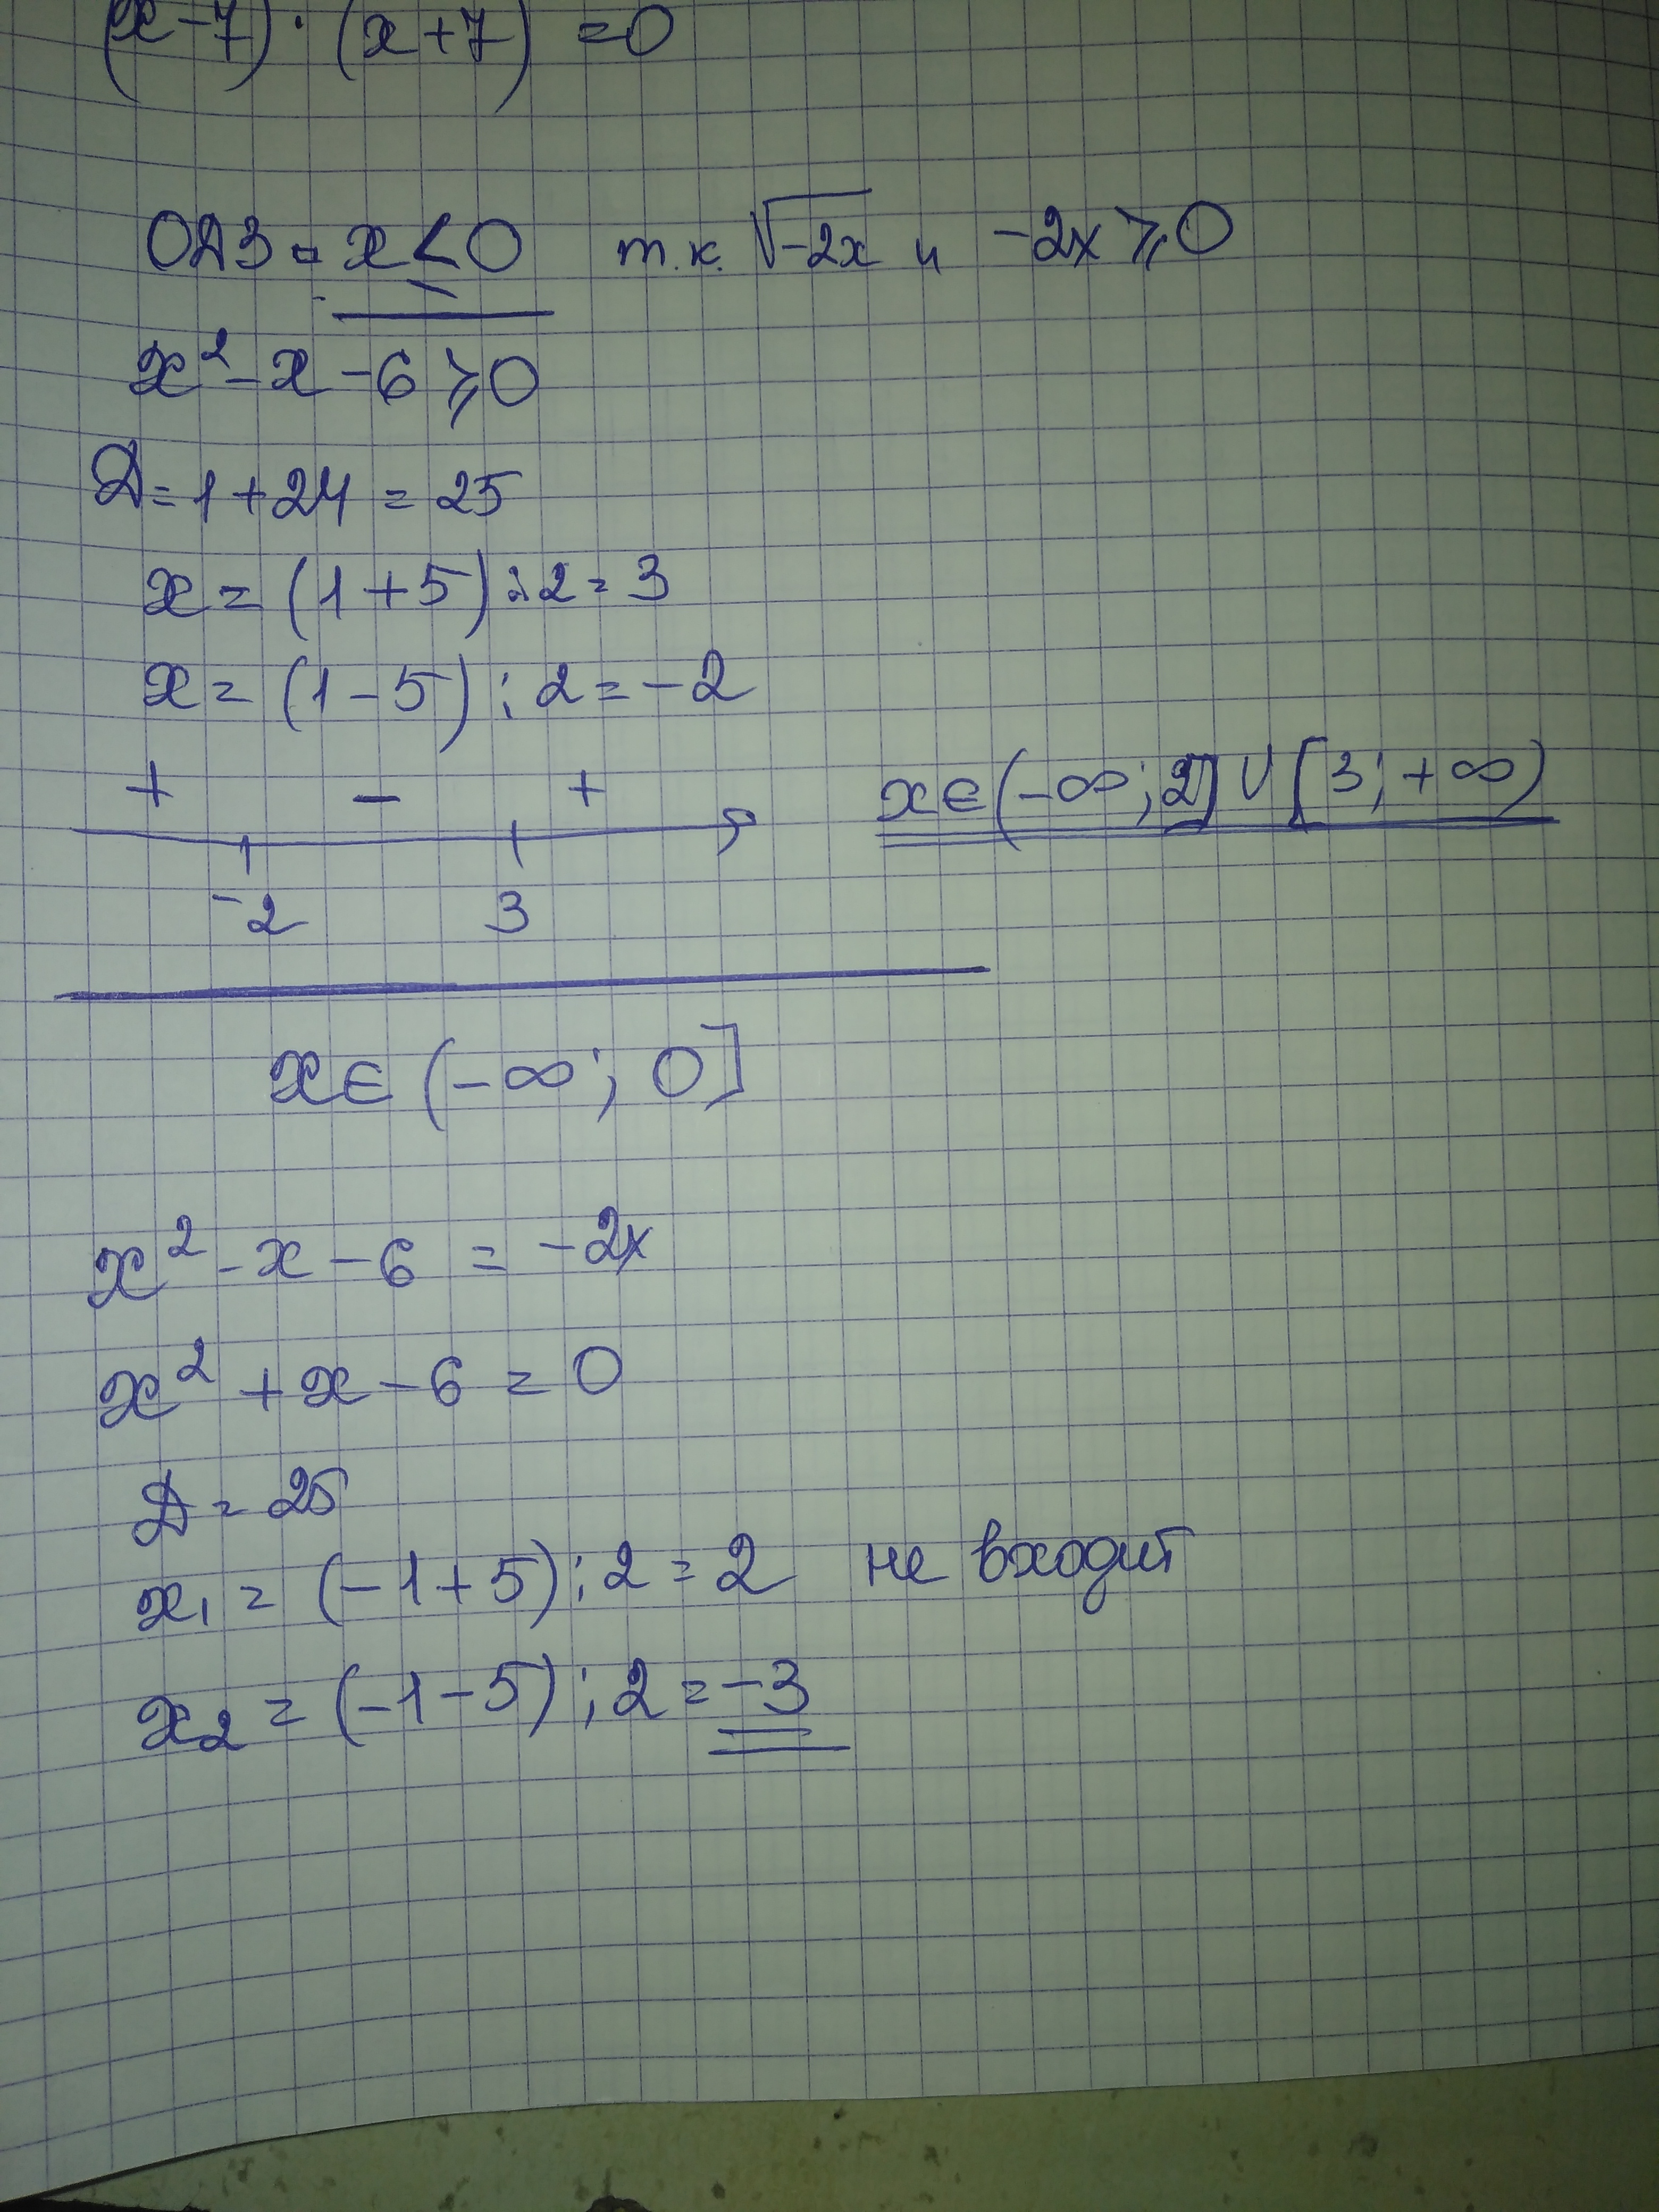 (x-7)·(x+7) =0
ОДЗ = x≤0 т.к. √-2x и -2x⩾0
x²-x-6⩾0
D=1+24=25
x=(1+5):2=3
x=(1-5):2=-2
+ - +
x∈(-∞;2]∪[3;+∞)
-2 3
x∈(-∞; 0]
x²-x-6 = -2x
x²+x-6=0
D=25
x₁=(-1+5):2=2 не входит
x₂=(-1-5):2=-3